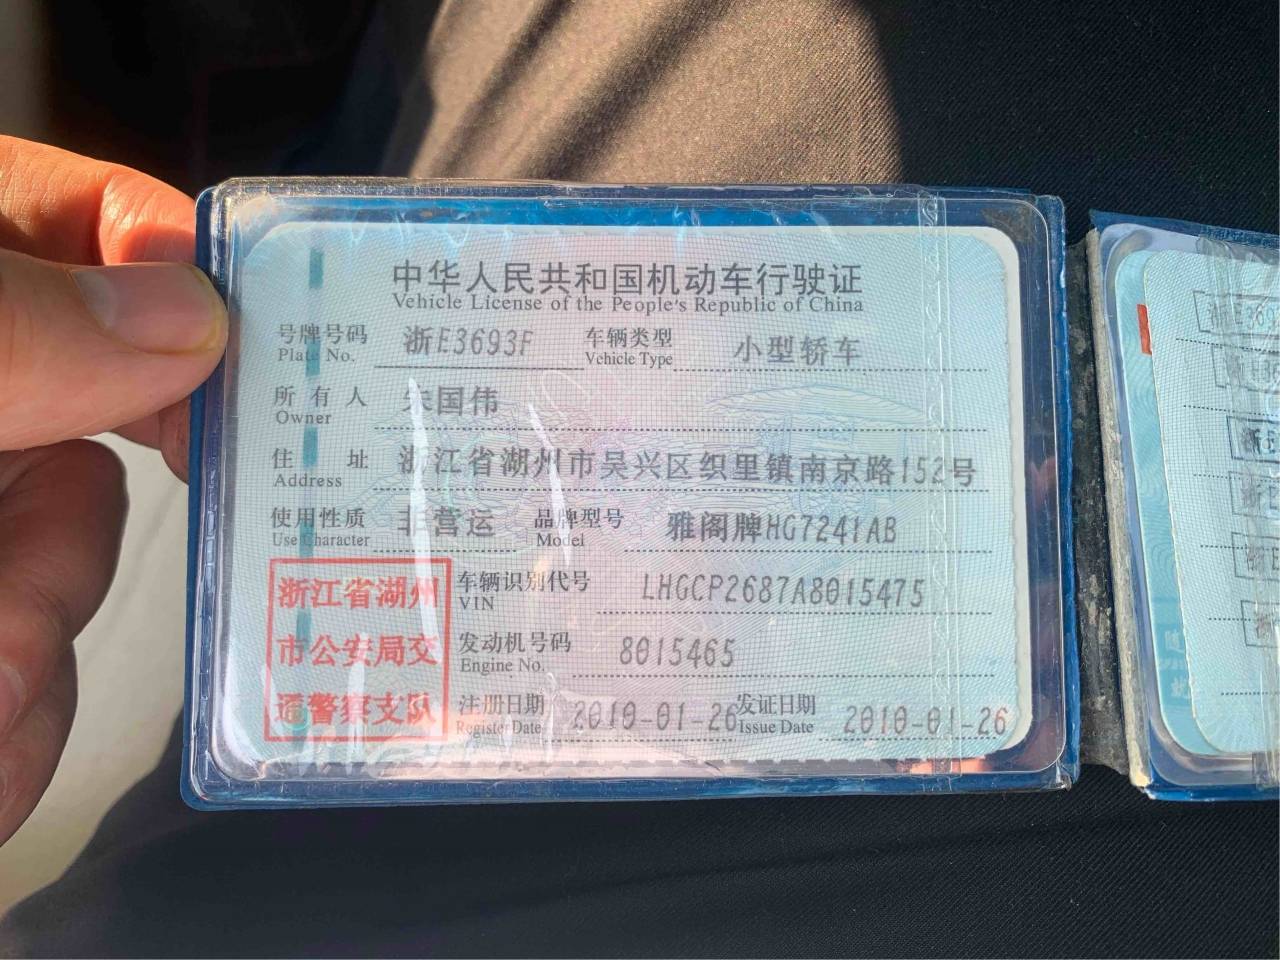 中华人民共和国机动车行驶证
Vehicle License of the People's Republic of China
号牌号码 浙E3693F 车辆类型 小型轿车
Plate No. Vehicle Type
所有人 朱国伟
Owner
住址 浙江省湖州市吴兴区织里镇南京路152号
Address
使用性质 非营运 品牌型号 雅阁牌HG7241AB
Use Character Model
浙江省湖州
市公安局交
通警察支队
车辆识别代号 LHGCP2687A8015475
VIN
发动机号码 8015465
Engine No.
注册日期 2010-01-26 发证日期 2010-01-26
Register Date Issue Date